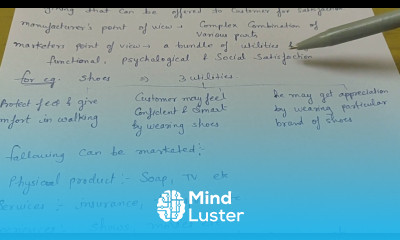 thing that can be offered to customer for satisfaction
manufacturer's point of view → Complex Combination of
Various parts
marketers point of view → a bundle of utilities &
functional, psychological & Social Satisfaction
for eg. Shoes 3 utilities.
Protect feet & give Customer may feel he may get appreciation
comfort in walking Confident & Smart by wearing particular
by wearing shoes brand of shoes
following Can be marketed:
Physical product :- Soap, TV etc
Services : insurance,
Mind
Luster